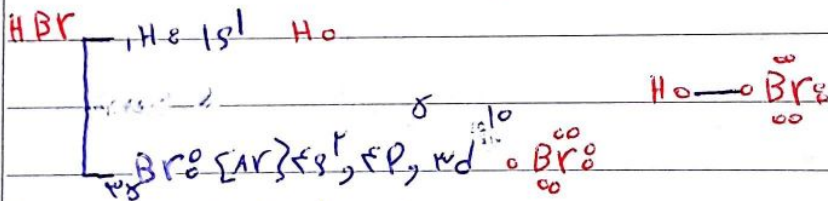 HBr
₁H: 1s¹ H∘
H∘—∘Br
₃₅Br: [Ar] ۴s², ۴p⁵, ۳d¹⁰ Br